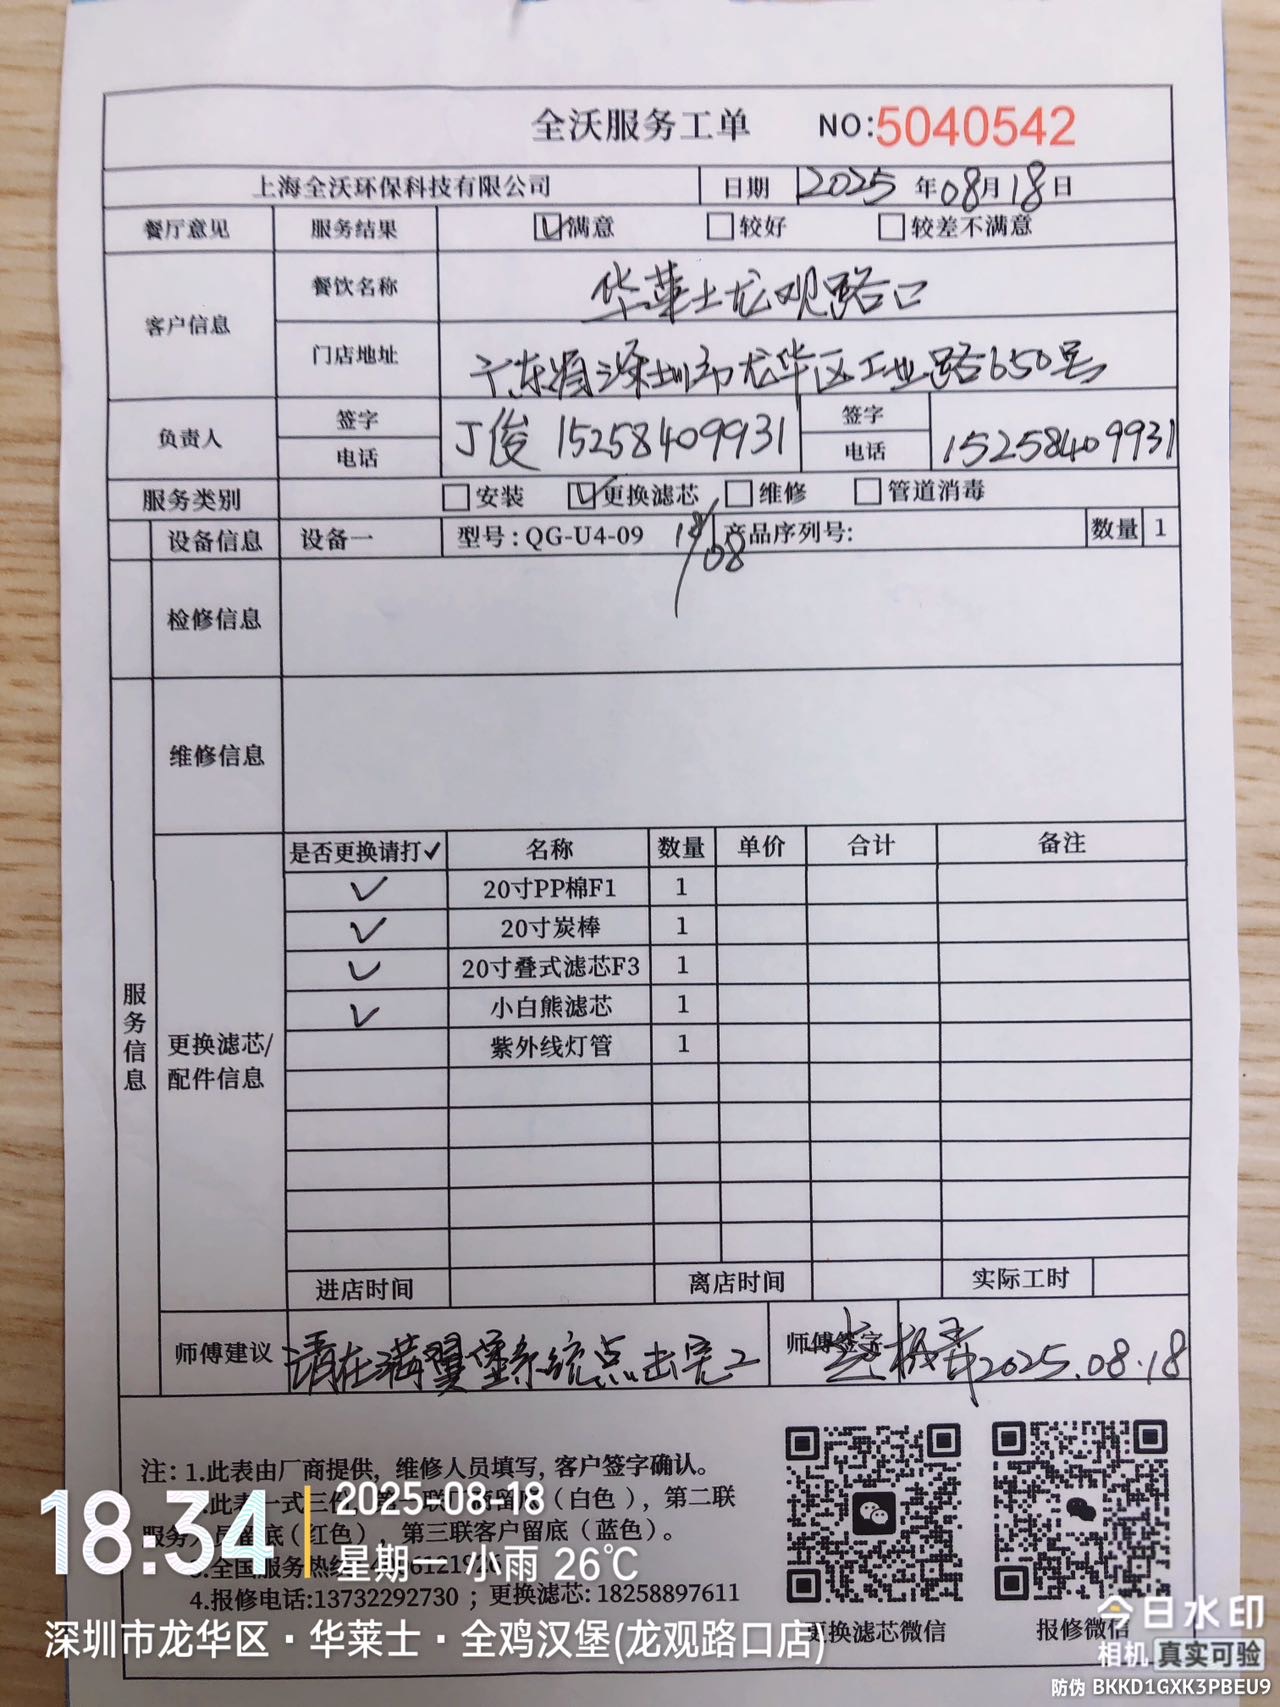 全沃服务工单 NO:5040542
上海全沃环保科技有限公司 日期 2025年08月18日
餐厅意见 服务结果 ☑满意 □较好 □较差不满意
客户信息 餐饮名称 华莱士龙观路口
门店地址 广东省深圳市龙华区工业路650号
负责人 签字 丁俊 15258409931 签字
电话 电话 15258409931
服务类别 □安装 ☑更换滤芯 □维修 □管道消毒
设备信息 设备一 型号:QG-U4-09 18/08 产品序列号: 数量 1
检修信息
维修信息
服务信息
更换滤芯/配件信息
是否更换请打✓ 名称 数量 单价 合计 备注
✓ 20寸PP棉F1 1
✓ 20寸炭棒 1
✓ 20寸叠式滤芯F3 1
✓ 小白熊滤芯 1
紫外线灯管 1
进店时间 离店时间 实际工时
师傅建议 请在满翼堡系统点击完工 师傅签字 2025.08.18
注: 1.此表由厂商提供, 维修人员填写, 客户签字确认。
此表一式三份 留底(白色), 第二联
服务人员留底(红色), 第三联客户留底(蓝色)。
3.全国服务热线
4.报修电话:13732292730 ; 更换滤芯: 18258897611
更换滤芯微信 报修微信
18:34 2025-08-18
星期一 小雨 26℃
深圳市龙华区·华莱士·全鸡汉堡(龙观路口店)
今日水印
相机 真实可验
防伪 BKKD1GXK3PBEU9